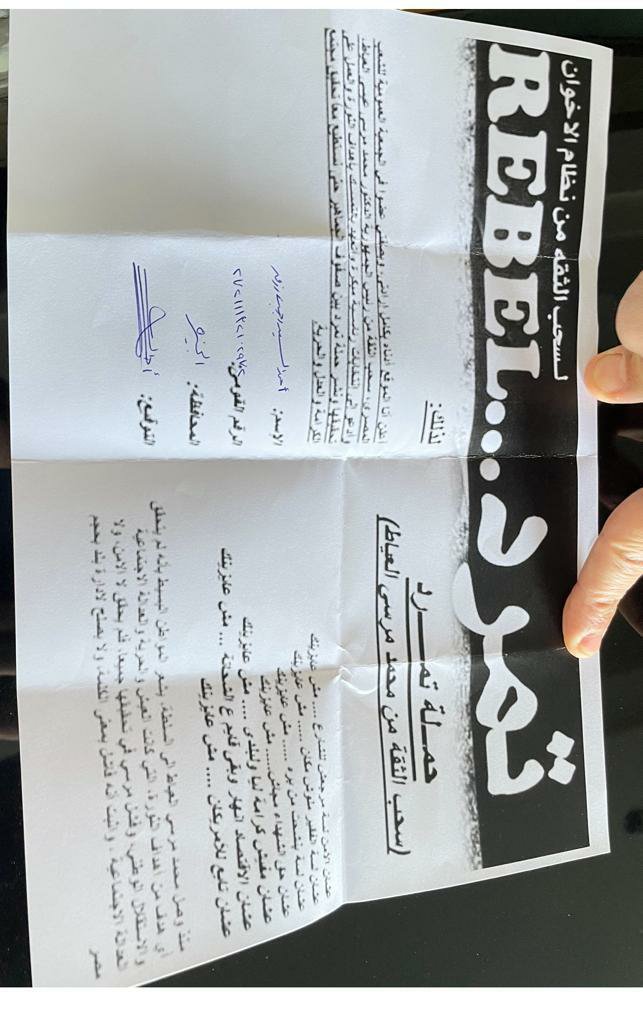 لسحب الثقه من نظام الاخوان
REBEL...تمرد
حملة تمـــرد
(سحب الثقة من محمد مرسى العياط)
عشان الامن لسة مرجعش للشارع .... مش عايزينك
عشان لسة الفقير ملوش مكان .... مش عايزينك
عشان لسة بنشحت من بره .... مش عايزينك
عشان حق الشهداء مجاش .... مش عايزينك
عشان مفيش كرامة ليا ولبلدى .... مش عايزينك
عشان الاقتصاد انهار وبقى قايم ع الشحاتة ... مش عايزينك
عشان تابع للامريكان .... مش عايزينك
منذ وصل محمد مرسي العياط الى السلطة، يشعر المواطن البسيط بانه لم يتحقق
أي هدف من اهداف الثورة، التي كانت العيش والحرية والعدالة الاجتماعية
والاستقلال الوطني، وفشل مرسي في تحقيقها جميعا، فلم يحقق لا الامن، ولا
العدالة الاجتماعية ، واثبت انه فاشل بمعنى الكلمة، ولا يصلح لادارة بلد بحجم
مصر
لذلك:
اعلن انا الموقع أدناه بكامل إرادتي، وبصفتي عضوا في الجمعية العمومية للشعب
المصري، سحب الثقة من رئيس الجمهورية الدكتور محمد مرسي عيسى العياط،
وأدعو الى انتخابات رئاسية مبكرة وأتعهد بالتمسك بأهداف الثورة والعمل على
تحقيقها ونشر حملة تمرد بين صفوف الجماهير حتى نستطيع معا تحقيق مجتمع
الكرامة والعدل والحرية.
الاسم: احمد السيد
الرقم القومي:
المحافظة: الجيزة
التوقيع: